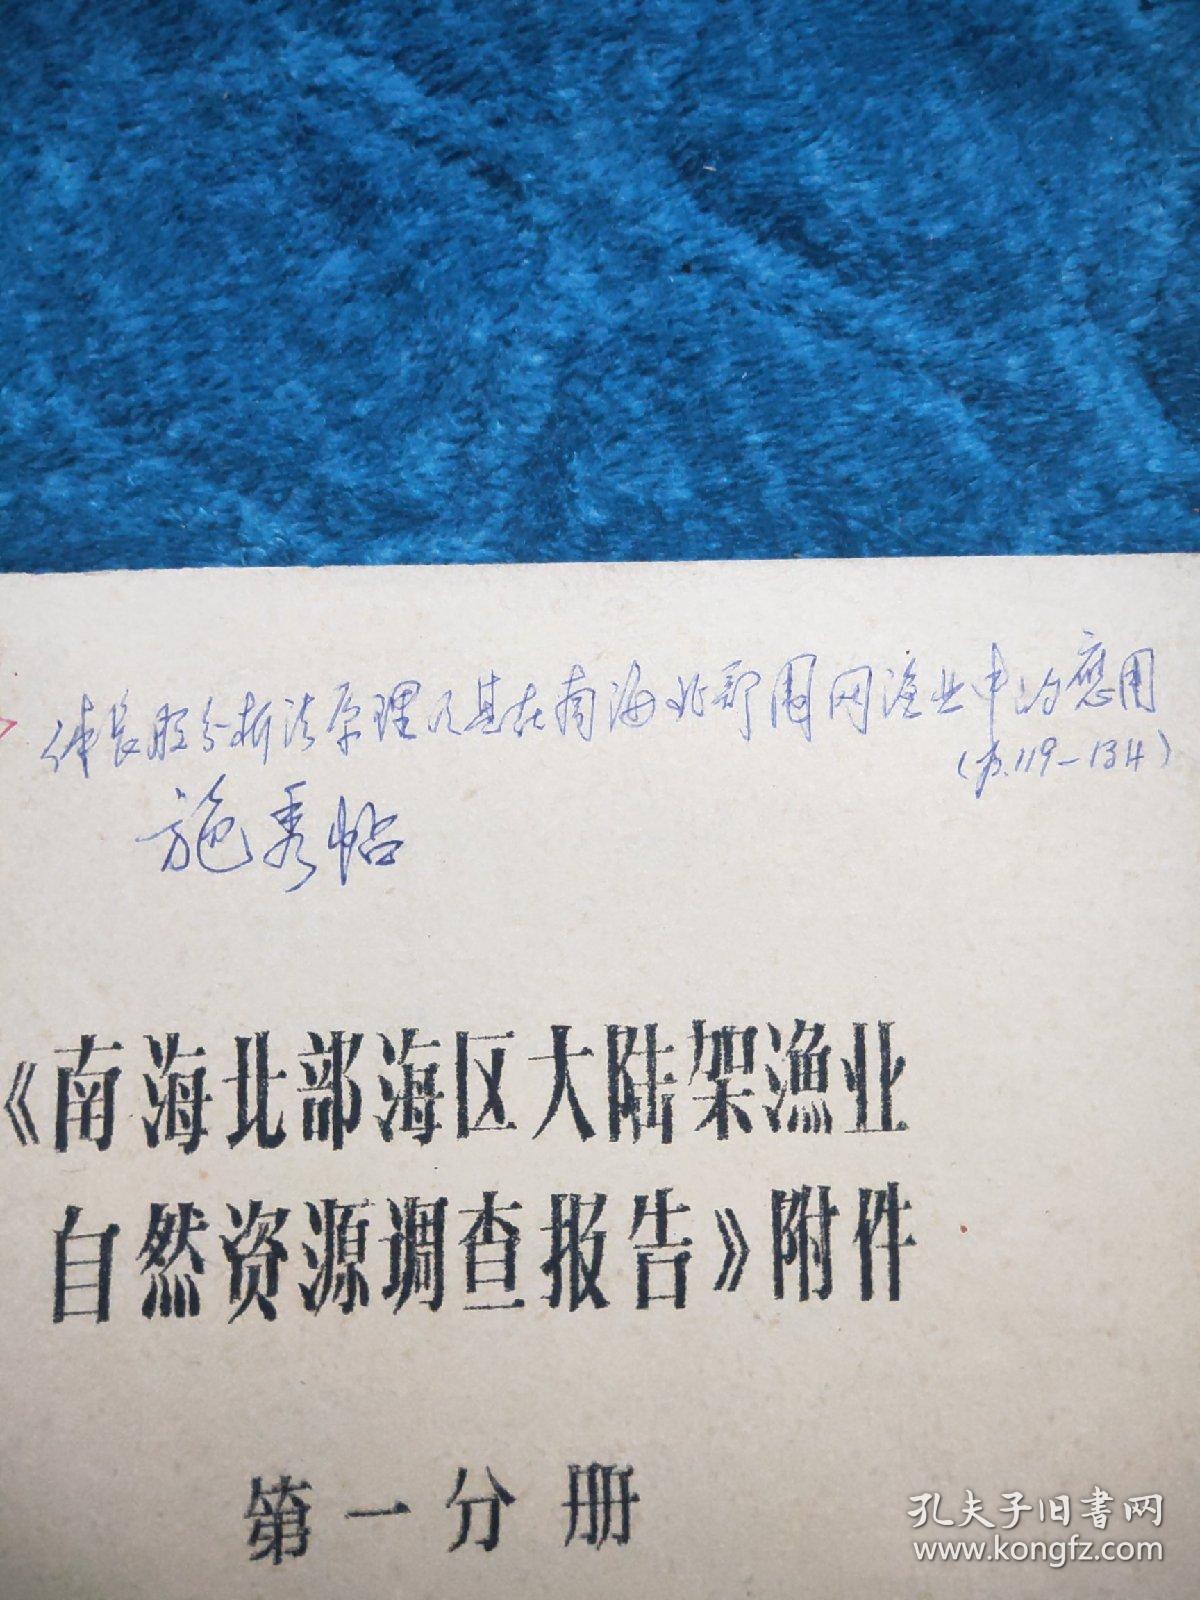 体长股分析法原理及其在南海北部围网渔业中的應用
(p.119-134)
施秀帖
《南海北部海区大陆架渔业
自然资源调查报告》附件
第一分册
孔夫子旧书网
www.kongfz.com